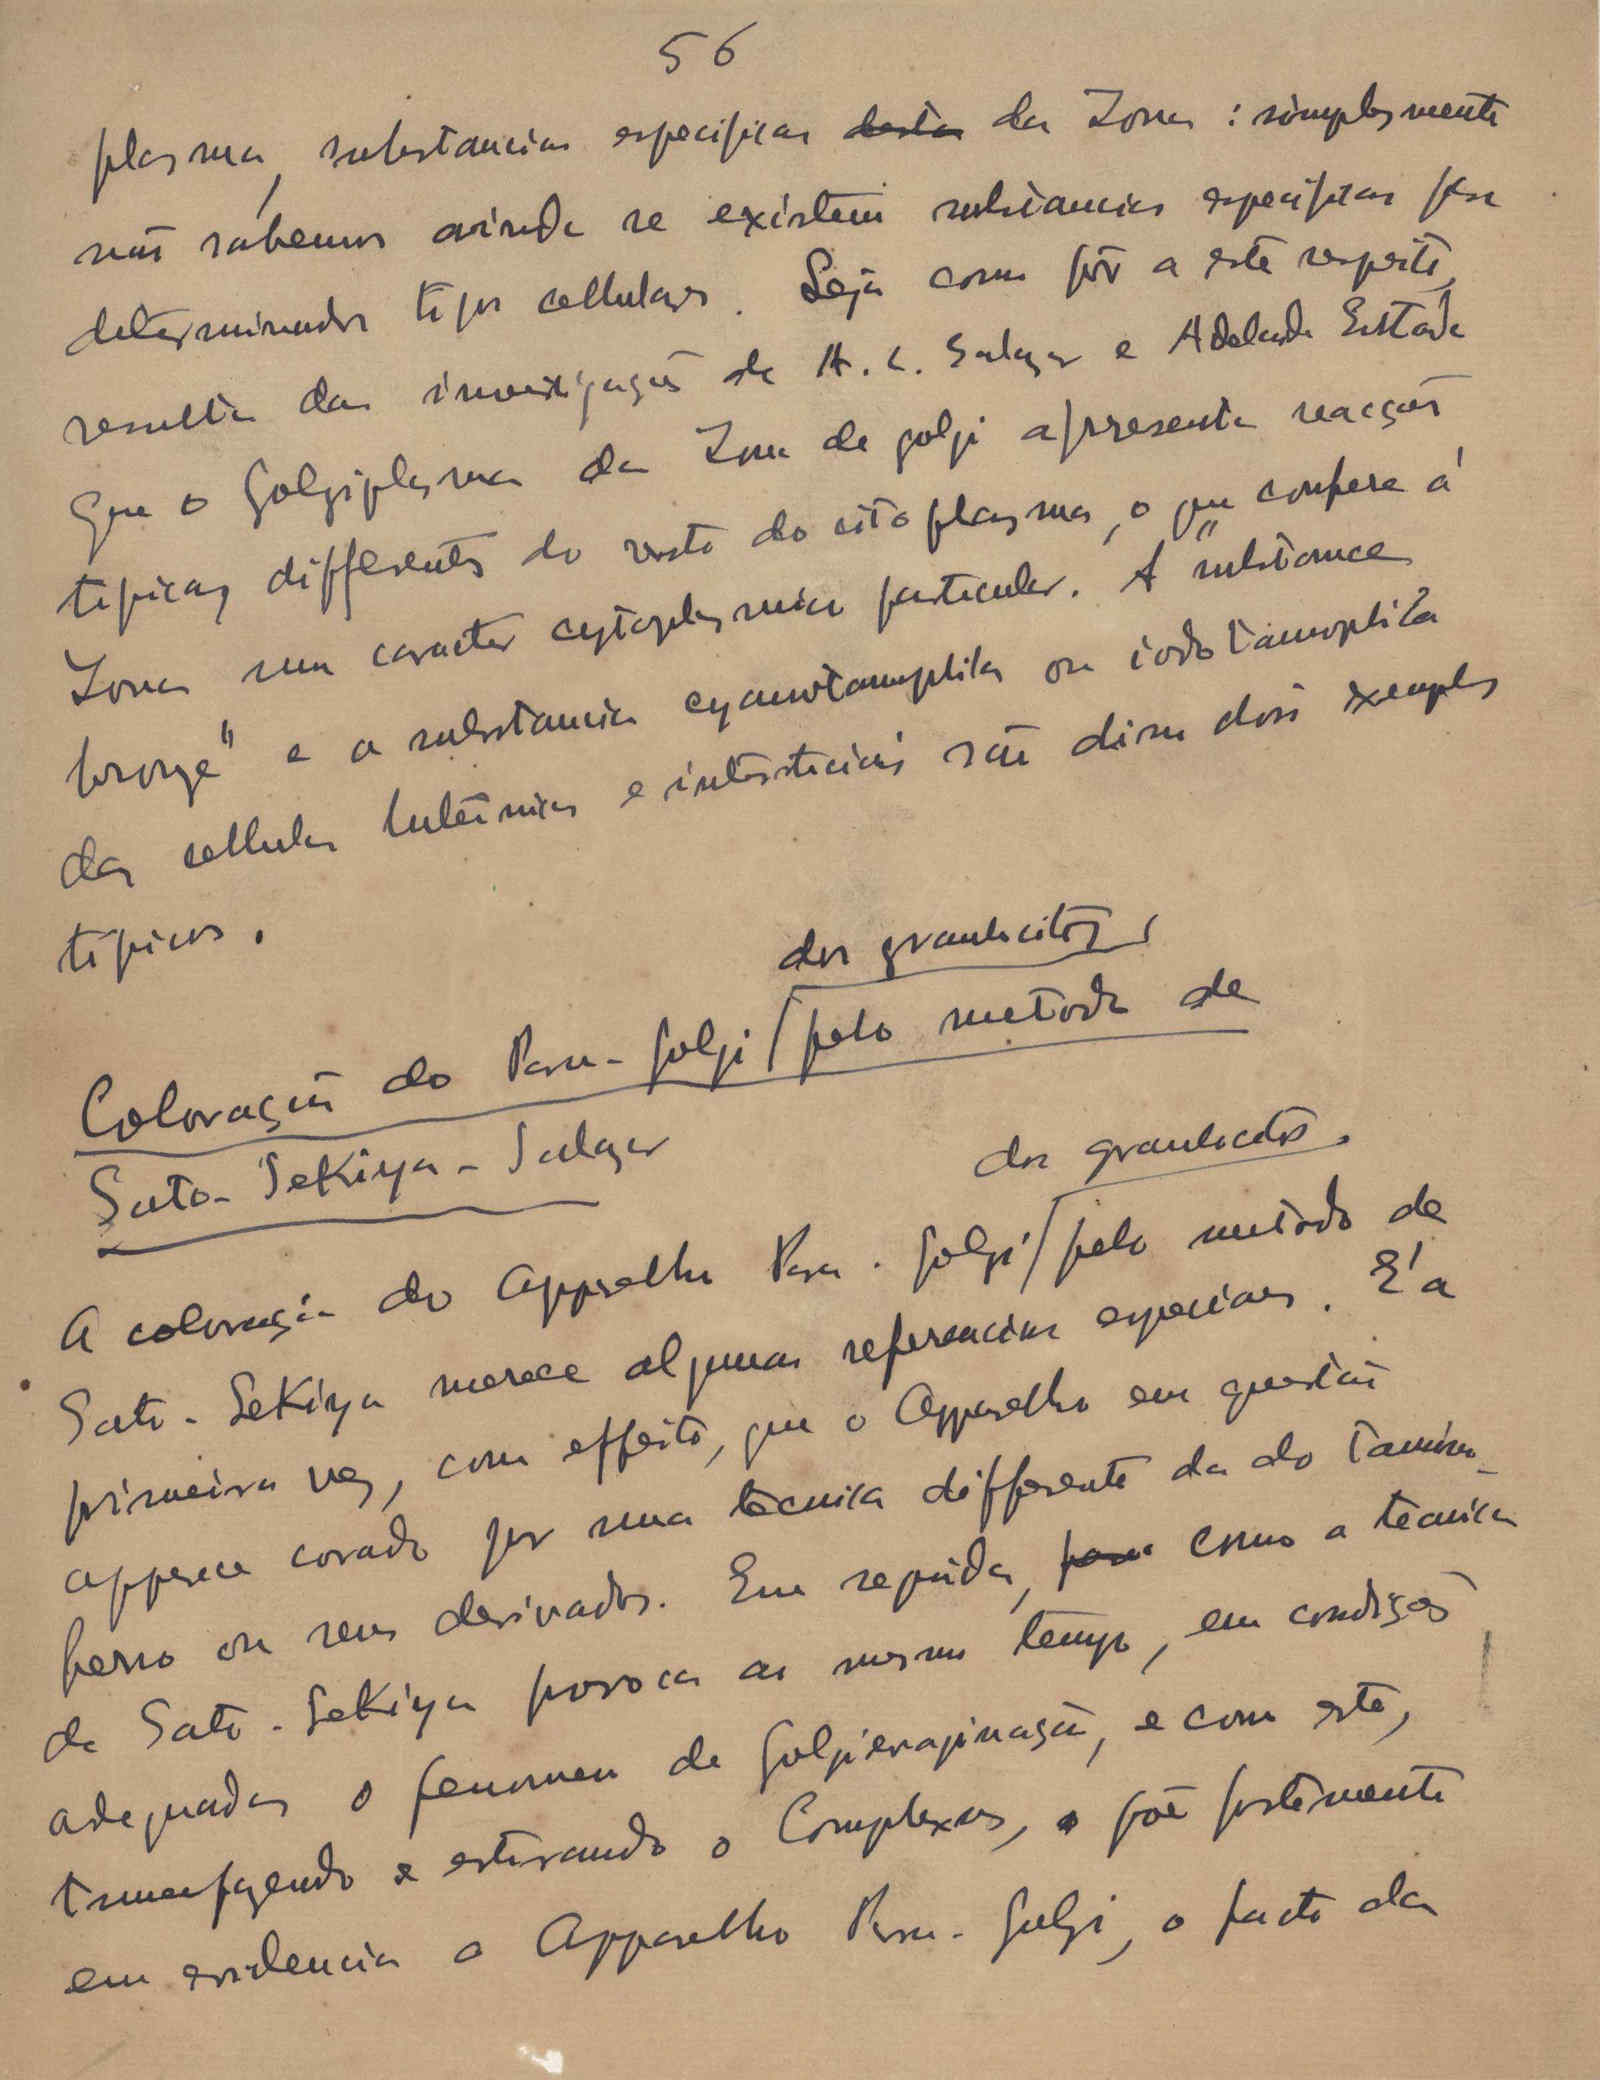 56
plasma, substancias especificas desta da Zona : simplesmente
não sabemos ainda se existem substancias especificas para
determinados tipos cellulares. Seja como fôr a este respeito,
resulta das investigações de A. L. Salazar e Adelaide Estrada
que o Golgiplasma da Zona de golgi apresenta reacções
tipicas differentes do resto do citoplasma, o que confere á
Zona um caracter cytoplasmico particular. A "substance
bronze" e a substancia cyanotanophila ou iodotanophila
das cellulas luteinicas e intersticiais são disso dois exemplos
tipicos.
dos granulocitos,
Coloração do Para-Golgi pelo metodo de
Sato-Sekiya-Salazar
dos granulocitos.
A coloração do Apparelho Para-Golgi pelo metodo de
Sato-Sekiya merece algumas referencias especiaes. E' a
primeira vez, com effeito, que o Apparelho em questão
apparece corado por uma técnica differente da do tanino-
ferro ou seus derivados. Em seguida, como a técnica
de Sato-Sekiya provoca ao mesmo tempo, em condições
adequadas o fenomeno de Golgievaginação, e com este,
tumefazendo e estirando o Complexus, põe fortemente
em evidencia o Apparelho Para-Golgi, o facto da